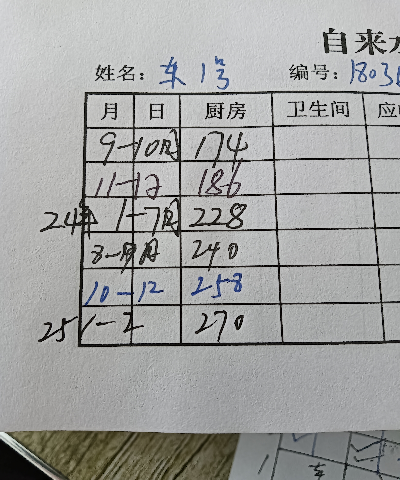 自来水
姓名: 东1号 编号: 1803
月 日 厨房 卫生间 应
9-10月 174
11-12 186
24年 1-7月 228
8-9月 240
10-12 258
25 1-2 270